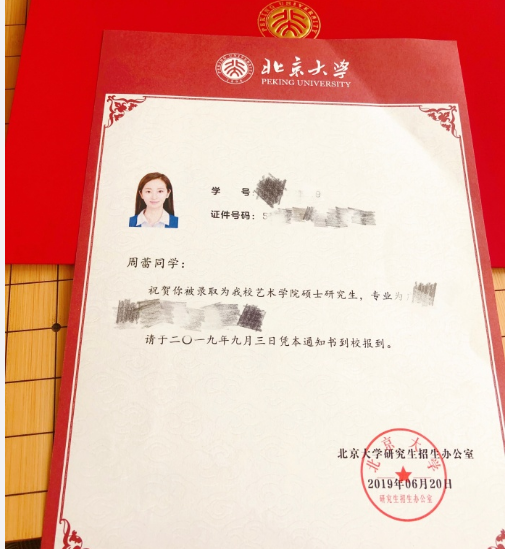 北京大学
PEKING UNIVERSITY
学 号
证件号码：S
周蕾同学：
祝贺你被录取为我校艺术学院硕士研究生，专业为
请于二〇一九年九月三日凭本通知书到校报到。
北京大学研究生招生办公室
2019年06月20日
北京大学
研究生招生办公室